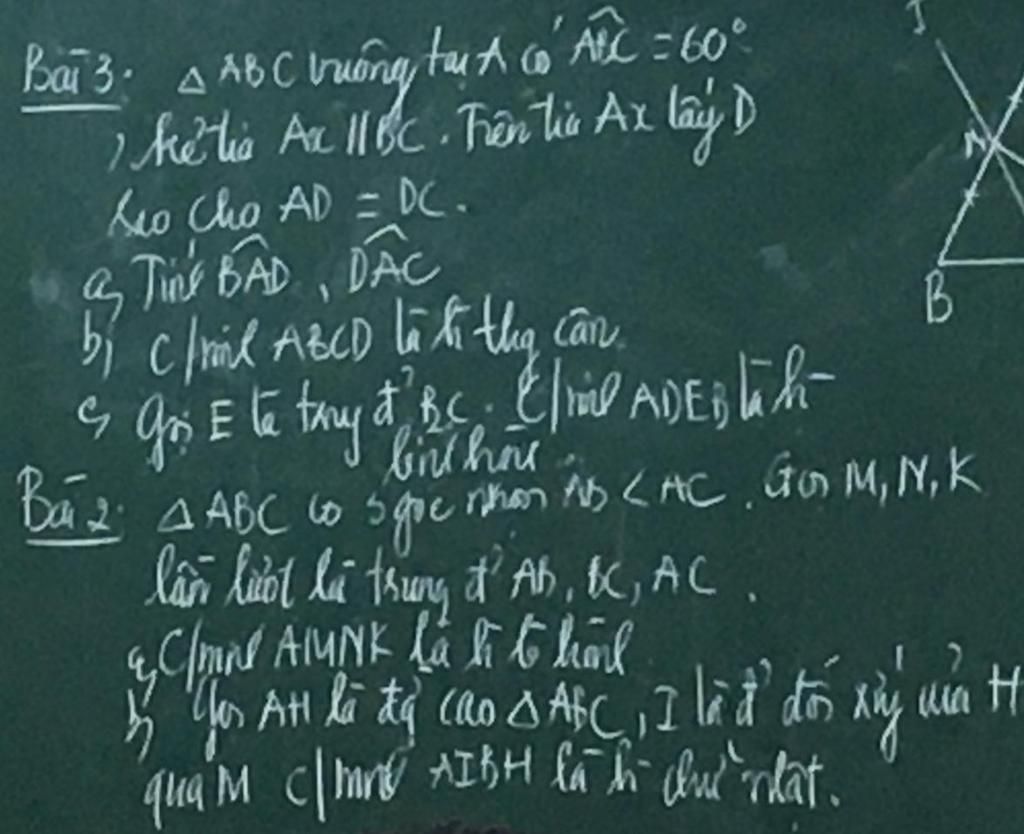 Bài 3. △ ABC vuông tại A có ABC = 60°
, kẻ tia Ax // BC. Trên tia Ax lấy D
sao cho AD = DC.
a, Tính BAD, DAC
b, C/minh ABCD là h thg cân
c, gọi E là trung đ' BC. C/minh ADEB là h-
bình hành
Bài 2. △ ABC có 3 góc nhọn AB < AC. Gọi M, N, K
lần lượt là trung đ' AB, BC, AC.
a, C/minh AMNK là h b hành
b, Gọi AH là đg cao △ ABC, I là đ' đối xứng của H
qua M C/minh AIBH là h- chữ nhật.
J
N
B